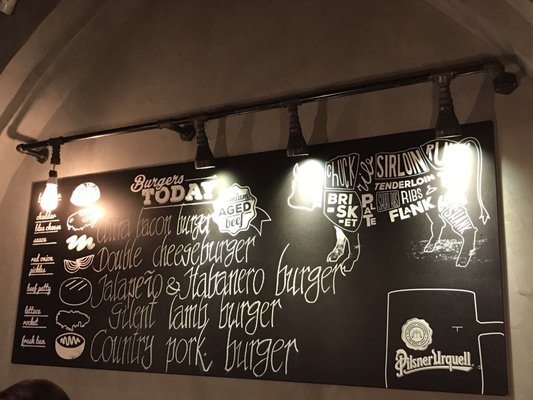 Burgers
TODAY
AGED
beef
bacon burger
Double cheeseburger
Jalapeño & Habanero burger
Silent lamb burger
Country pork burger
cheddar
blue cheese
sauce
red onion
pickles
beef patty
lettuce
rocket
fresh bun
CHUCK
Rib
SIRLOIN
TENDERLOIN
RIBS
FLANK
BRISKET
PLATE
Pilsner Urquell